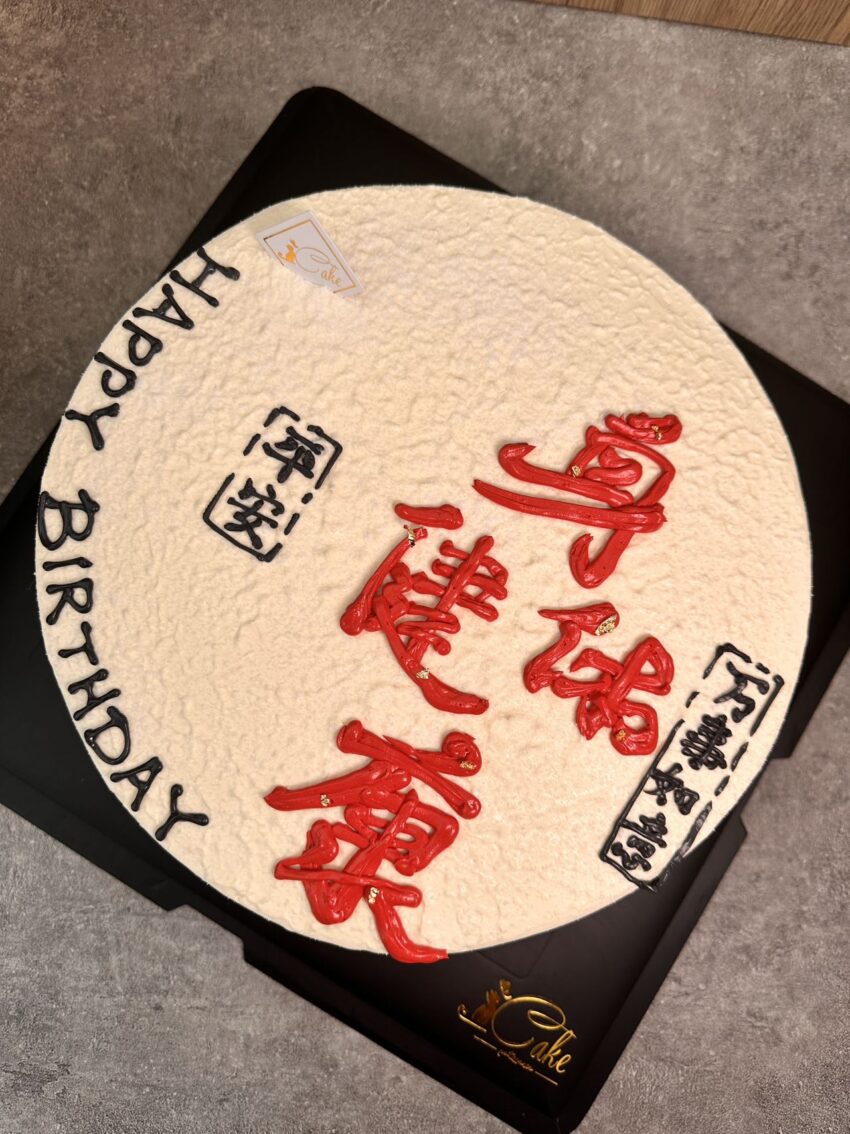 万事如意
身体
健康
平安
HAPPY BIRTHDAY
Cake
Cake